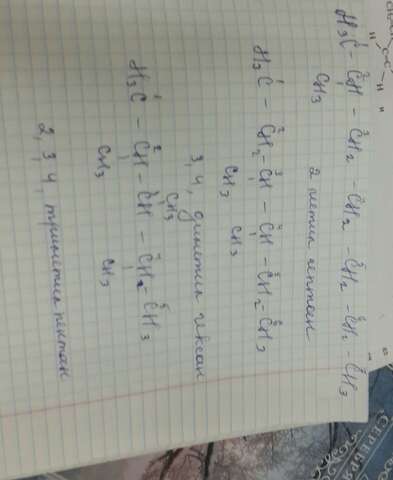 H₃C¹ - ²CH - ³CH₂ - ⁴CH₂ - ⁵CH₂ - ⁶CH₂ - ⁷CH₃
CH₃
2 метил гептан
H₃C¹ - ²CH₂ - ³CH - ⁴CH - ⁵CH₂ - ⁶CH₃
CH₃ CH₃
3,4, диметил гексан
H₃C¹ - ²CH - ³CH - ⁴CH₂ - ⁵CH₃
CH₃ CH₃ CH₃
2, 3, 4, триметил пентан
СЕРЕБРЯ